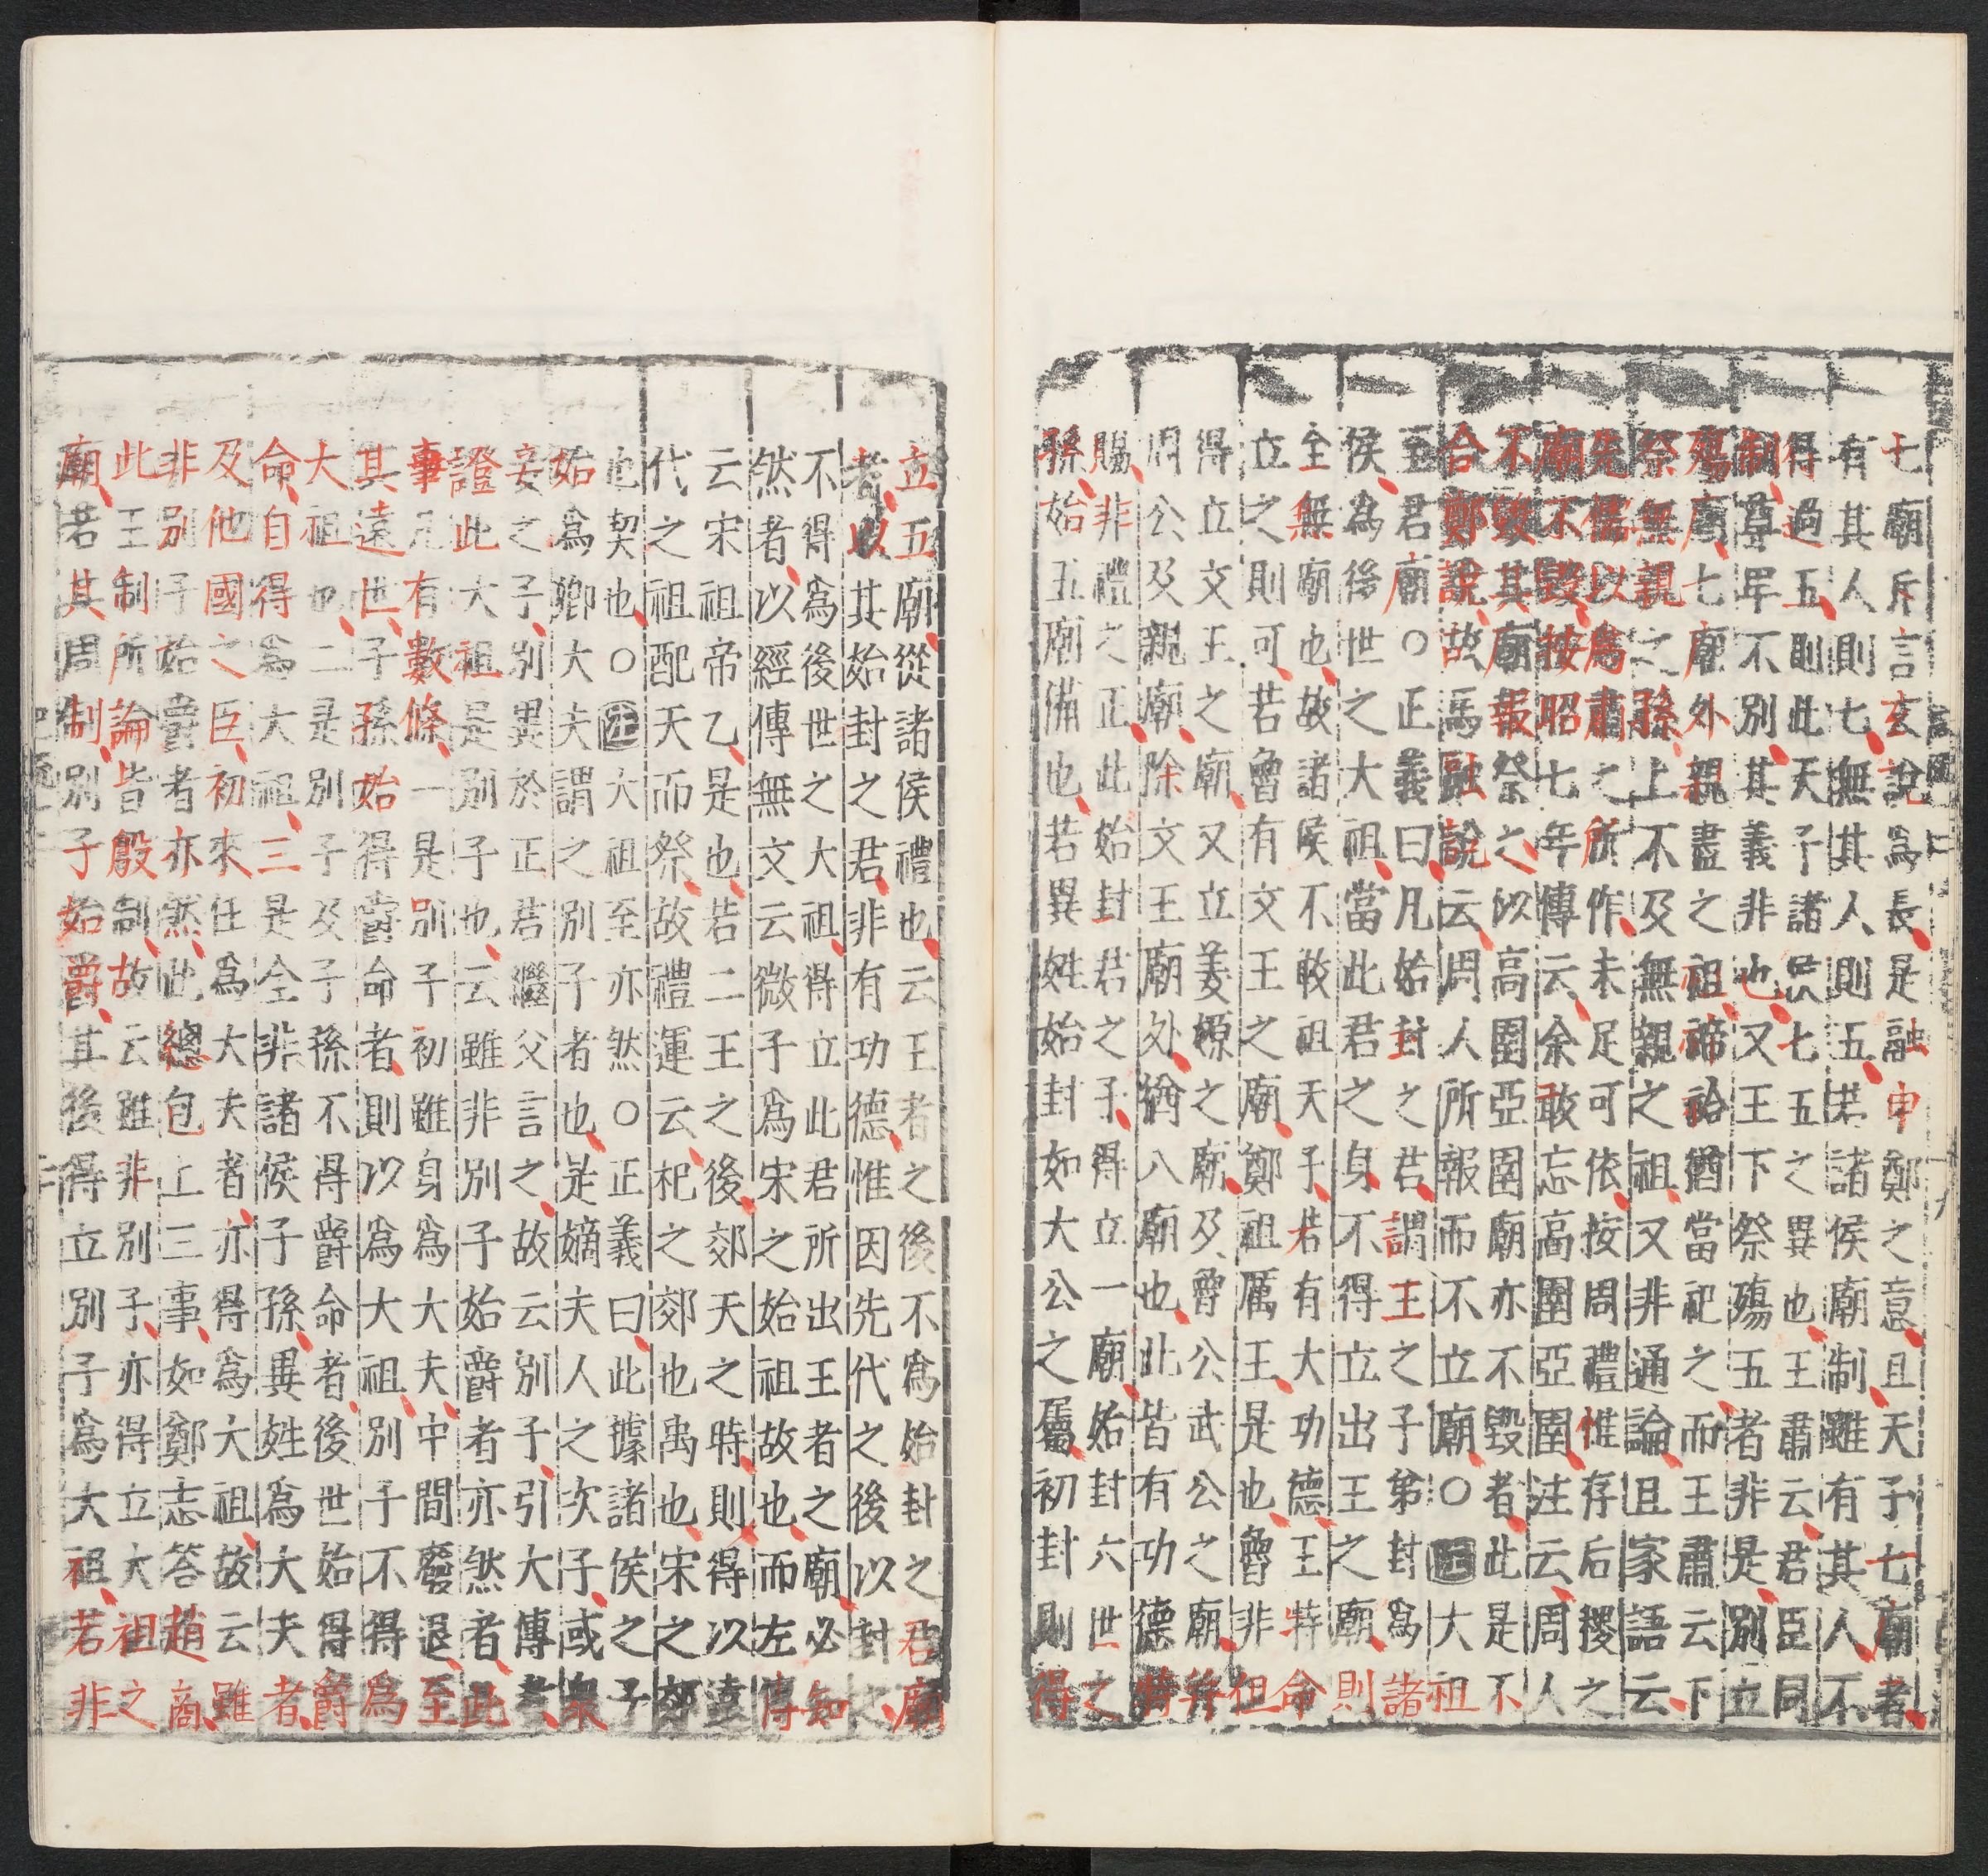 七廟斥言玄說爲長是融申鄭之意且天子七廟者
有其人則七無其人則五若諸侯廟制雖有其人不
得過五則此天子諸侯七五之異也王肅云君臣同
制尊卑不別其義非也又王下祭殤五者非是別立
殤廟七廟外親盡之祖禘祫猶當祀之而王肅云下
祭無親之孫上不及無親之祖又非通論且家語云
先儒以爲肅之所作未足可依按周禮惟存后稷之
廟不毀按昭七年傳云余敢忘高圉亞圉注云周人
不毀其廟報祭之似高圉亞圉廟亦不毀者此是不
合鄭說故馬融說云周人所報而不立廟○注大祖
至君廟○正義曰凡始封之君謂王之子第封爲諸
侯為後世之大祖當此君之身不得立出王之廟則
全無廟也故諸侯不敢祖天子若有大功德王特命
立之則可若魯有文王之廟鄭祖厲王是也魯非但
得立文王之廟又立姜嫄之廟及魯公武公之廟并
周公及親廟除文王廟外猶八廟也此皆有功德特
賜非禮之正此始封君之子得立一廟始封六世之
孫始五廟備也若異姓始封如大公之屬初封則得
立五廟從諸侯禮也云王者之後不爲始封之君廟
者以其始封之君非有功德惟因先代之後以封之
不得爲後世之大祖得立此君所出王者之廟必知
然者以經傳無文云微子爲宋之始祖故也而左傳
云宋祖帝乙是也若二王之後郊天之時則得以遠
代之祖配天而祭故禮運云杞之郊也禹也宋之郊
也契也○注大祖至亦然○正義曰此據諸侯之子
始爲卿大夫謂之別子者也是嫡夫人之次子或衆
妾之子別異於正君繼父言之故云別子引大傳者
證此大祖是別子也云雖非別子始爵者亦然者此
事凡有數條一是別子初雖身爲大夫中間廢退至
其遠世子孫始得爵命者則以爲大祖別子不得爲
大祖也二是別子及子孫不得爵命者後世始得爵
命自得爲大祖三是全非諸侯子孫異姓爲大夫者
及他國之臣初來任爲大夫者亦得爲大祖故云雖
非別子始爵者亦然此總包上三事如鄭志答趙商
此王制所論皆殷制故云雖非別子亦得立大祖之
廟若其周制別子始爵其後得立別子爲大祖若非